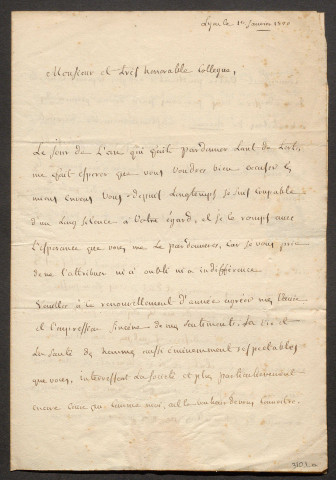 Lyon le 1er Janvier
Monsieur et très honorable Collègue,
Le jour de l'an qui fait pardonner tant de torts,
me fait esperer que vous voudrez bien excuser les
miens envers vous. depuis longtemps je suis coupable
d'un long silence à votre égard, et je le romps avec
l'esperance que vous me le pardonnerez, car je vous prie
de ne l'attribuer ni à oubli ni à indifférence.
Veuillez à ce renouvellement d'année agréer mes voeux
et l'expression sincère de mes sentiments. La vie et
la santé des hommes aussi éminemment respectables
que vous, intéressent la société et plus particulièrement
encore ceux qui comme moi, ont le bonheur de vous connaître.